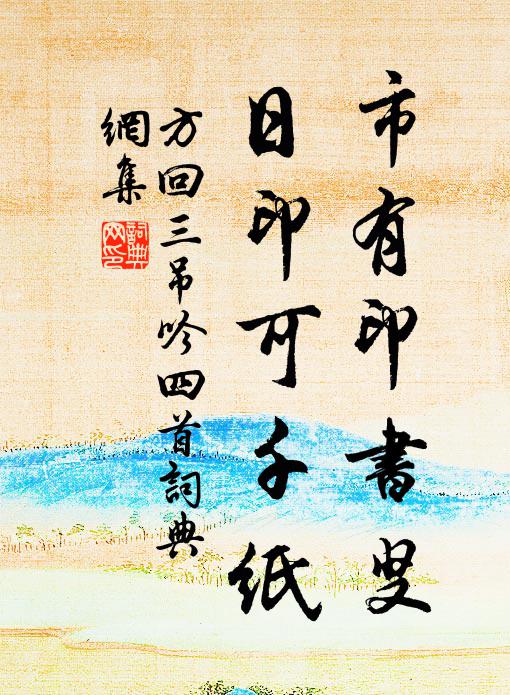 市有印書叟
日印可千紙
方回三吊吟四首詞典
網集
詞典网印